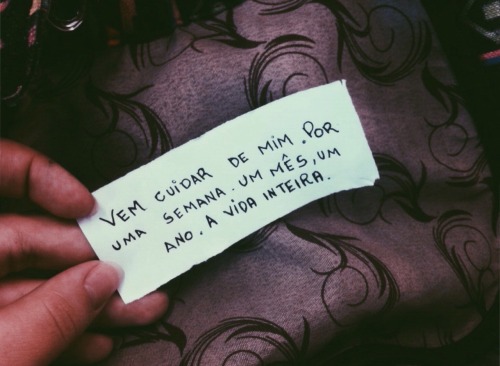 VEM CUIDAR DE MIM. POR
UMA SEMANA. UM MÊS, UM
ANO. A VIDA INTEIRA.